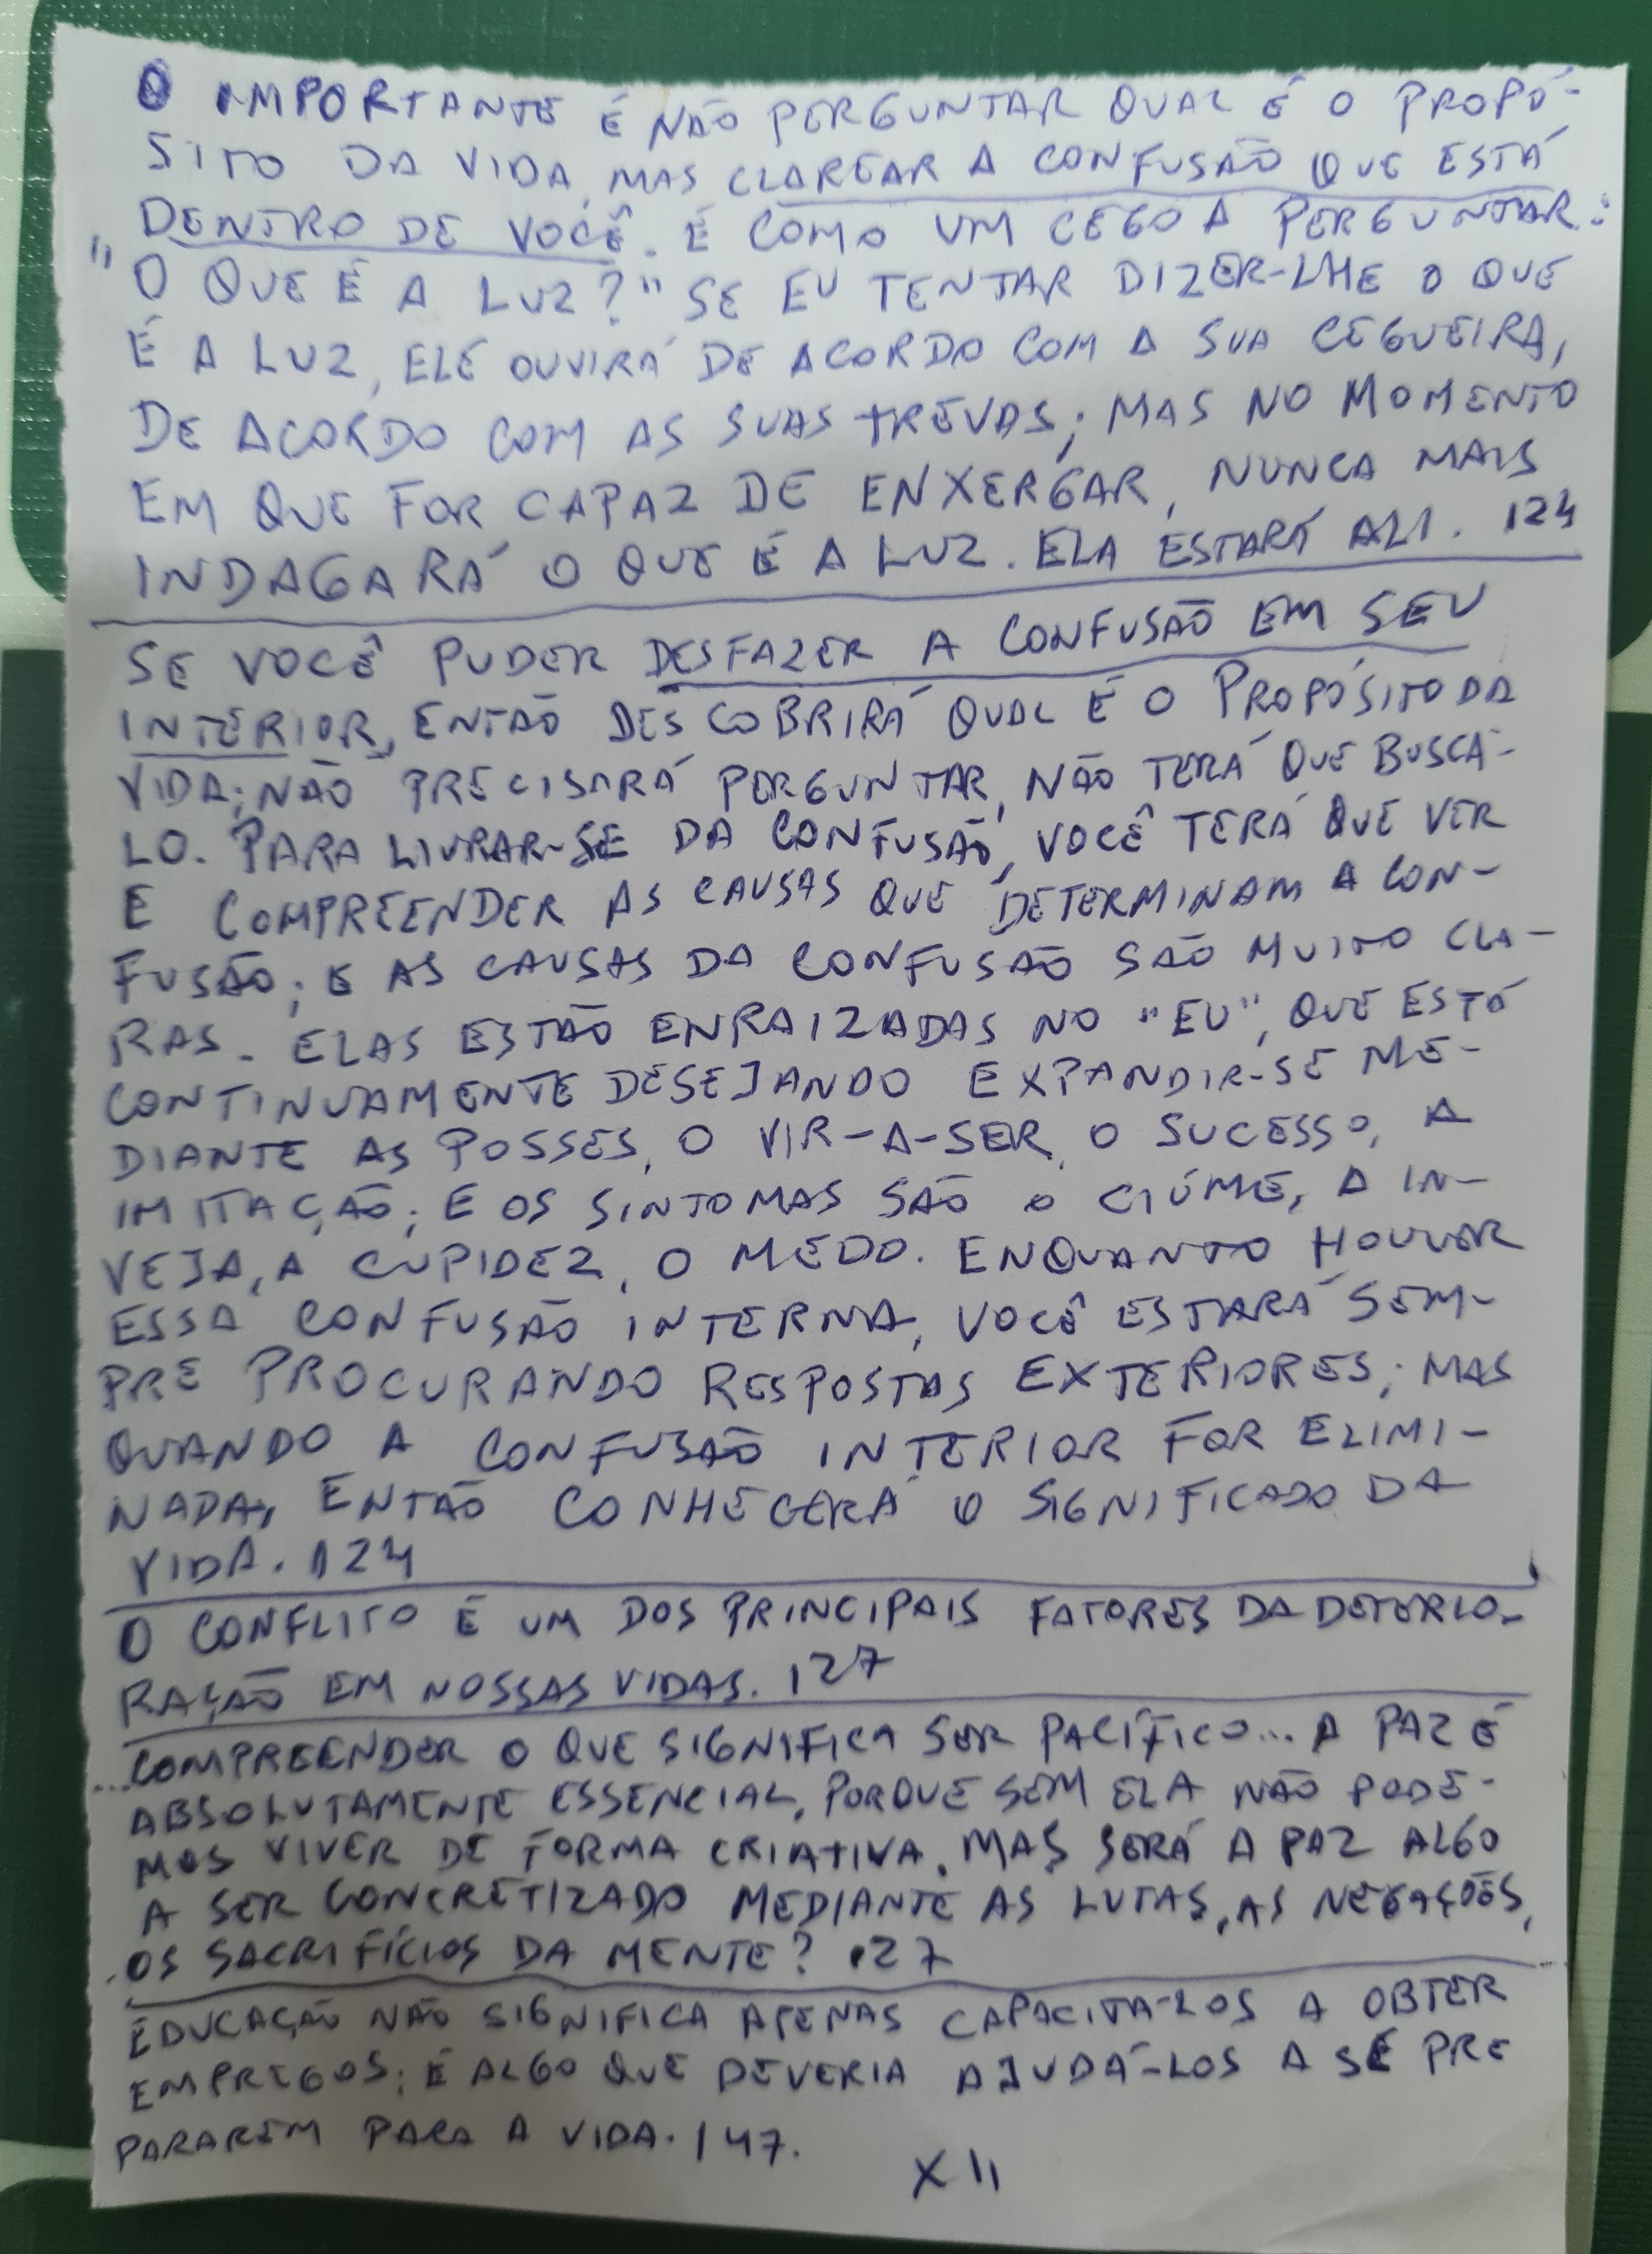 O IMPORTANTE É NÃO PERGUNTAR QUAL É O PROPÓ-
SITO DA VIDA, MAS CLAREAR A CONFUSÃO QUE ESTÁ
DENTRO DE VOCÊ. É COMO UM CEGO A PERGUNTAR:
"O QUE É A LUZ?" SE EU TENTAR DIZER-LHE O QUE
É A LUZ, ELE OUVIRÁ DE ACORDO COM A SUA CEGUEIRA,
DE ACORDO COM AS SUAS TREVAS; MAS NO MOMENTO
EM QUE FOR CAPAZ DE ENXERGAR, NUNCA MAIS
INDAGARÁ O QUE É A LUZ. ELA ESTARÁ ALI. 124
SE VOCÊ PUDER DESFAZER A CONFUSÃO EM SEU
INTERIOR, ENTÃO DESCOBRIRÁ QUAL É O PROPÓSITO DA
VIDA; NÃO PRECISARÁ PERGUNTAR, NÃO TERÁ QUE BUSCÁ-
LO. PARA LIVRAR-SE DA CONFUSÃO, VOCÊ TERÁ QUE VER
E COMPREENDER AS CAUSAS QUE DETERMINAM A CON-
FUSÃO; E AS CAUSAS DA CONFUSÃO SÃO MUITO CLA-
RAS. ELAS ESTÃO ENRAIZADAS NO "EU", QUE ESTÁ
CONTINUAMENTE DESEJANDO EXPANDIR-SE ME-
DIANTE AS POSSES, O VIR-A-SER, O SUCESSO, A
IMITAÇÃO; E OS SINTOMAS SÃO O CIÚME, A IN-
VEJA, A CUPIDEZ, O MEDO. ENQUANTO HOUVER
ESSA CONFUSÃO INTERNA, VOCÊ ESTARÁ SEM-
PRE PROCURANDO RESPOSTAS EXTERIORES; MAS
QUANDO A CONFUSÃO INTERIOR FOR ELIMI-
NADA, ENTÃO CONHECERÁ O SIGNIFICADO DA
VIDA. 124
O CONFLITO É UM DOS PRINCIPAIS FATORES DA DETERIO-
RAÇÃO EM NOSSAS VIDAS. 127
...COMPREENDER O QUE SIGNIFICA SER PACÍFICO... A PAZ É
ABSOLUTAMENTE ESSENCIAL, PORQUE SEM ELA NÃO PODE-
MOS VIVER DE FORMA CRIATIVA. MAS SERÁ A PAZ ALGO
A SER CONCRETIZADO MEDIANTE AS LUTAS, AS NEGAÇÕES,
OS SACRIFÍCIOS DA MENTE? 127
EDUCAÇÃO NÃO SIGNIFICA APENAS CAPACITÁ-LOS A OBTER
EMPREGOS; É ALGO QUE DEVERIA AJUDÁ-LOS A SE PRE
PARAREM PARA A VIDA. 147.
XII